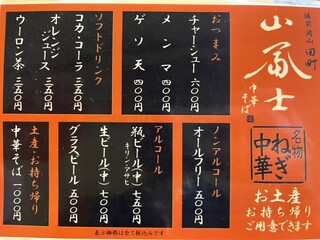 備前岡山 田町
山冨士
中華そば
名物
ねぎ
中華
お土産
お持ち帰り
ご用意できます
おつまみ
チャーシュー 六〇〇円
メンマ 四〇〇円
ゲソ天 四〇〇円
ソフトドリンク
コカ・コーラ 三五〇円
オレンジジュース 三五〇円
ウーロン茶 三五〇円
ノンアルコール
オールフリー 五〇〇円
アルコール
瓶ビール(中) 七五〇円
キリン・アサヒ
生ビール(中) 七〇〇円
グラスビール 五〇〇円
土産・お持ち帰り
中華そば 一〇〇〇円
表示価格は全て税込みです